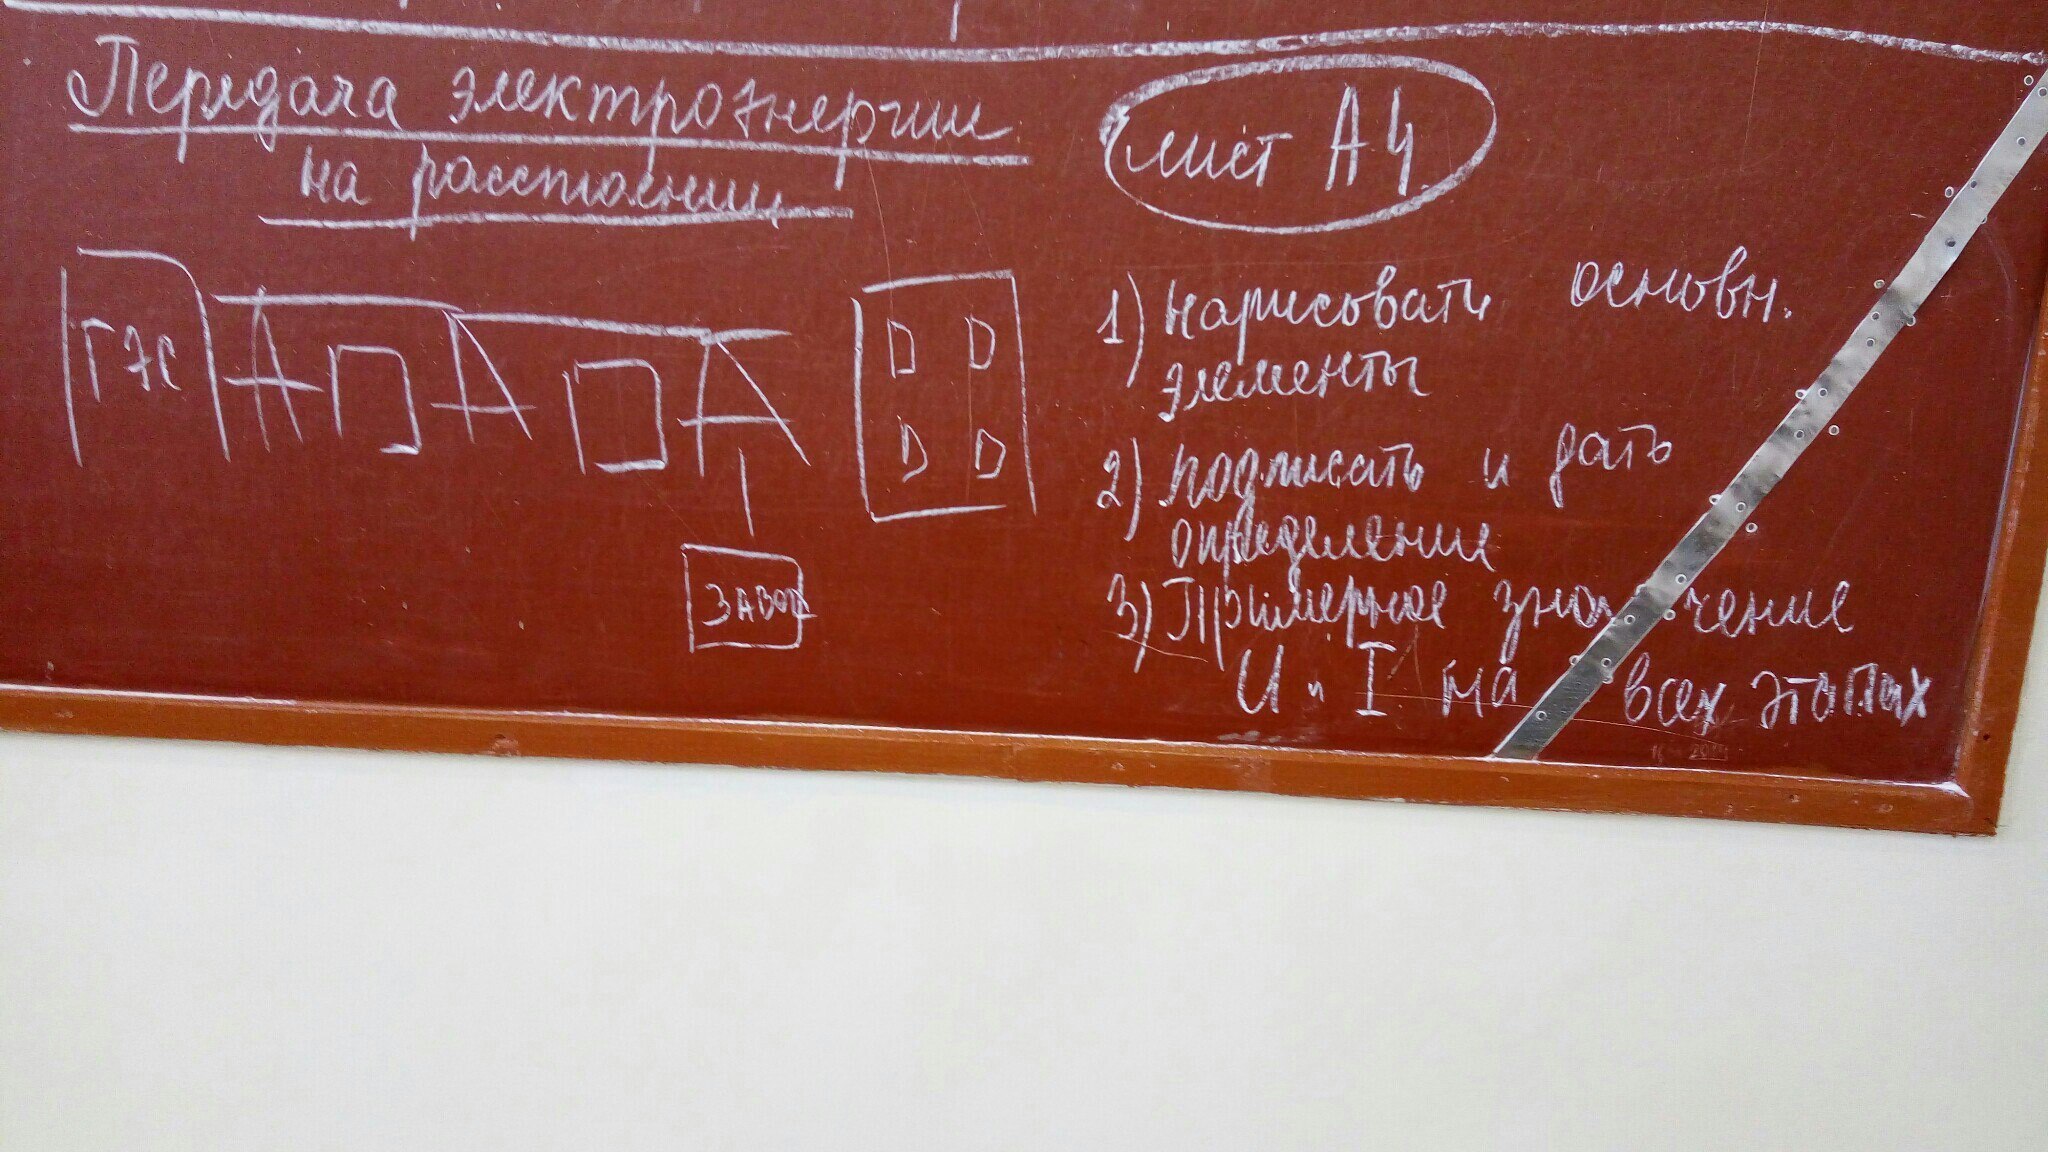 Передача электроэнергии
на расстоянии
лист А4
ГЭС
ЗАВОД
1) нарисовать основн.
элементы
2) подписать и дать
определение
3) Примерное значение
U и I на всех этапах